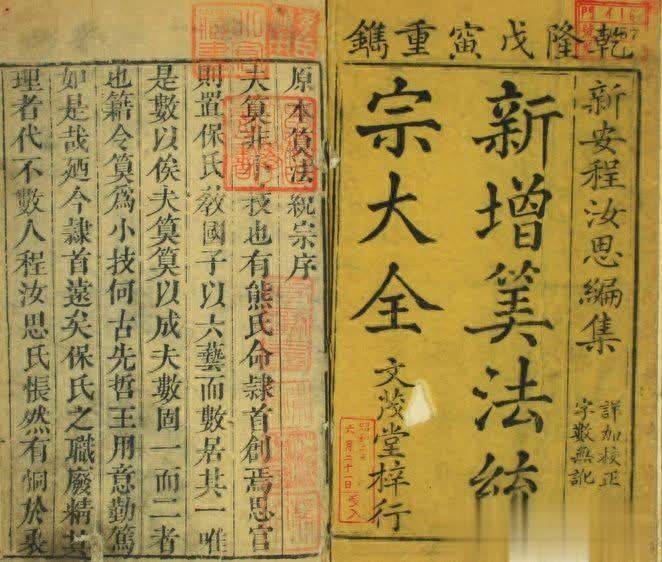 乾隆戊寅重鐫
新安程汝思編集
詳加校正
字數無訛
新增筭法統
宗大全
文茂堂梓行
原本筭法統宗序
夫筭非小技也有熊氏命隸首創焉思官
則置保氏敎國子以六藝而數居其一唯
是數以俟夫筭筭以成夫數固一而二者
也籍令筭爲小技何古先哲王用意勤篤
如是哉廼今隸首遠矣保氏之職廢精其
理者代不數人程汝思氏悵然有恫於衷